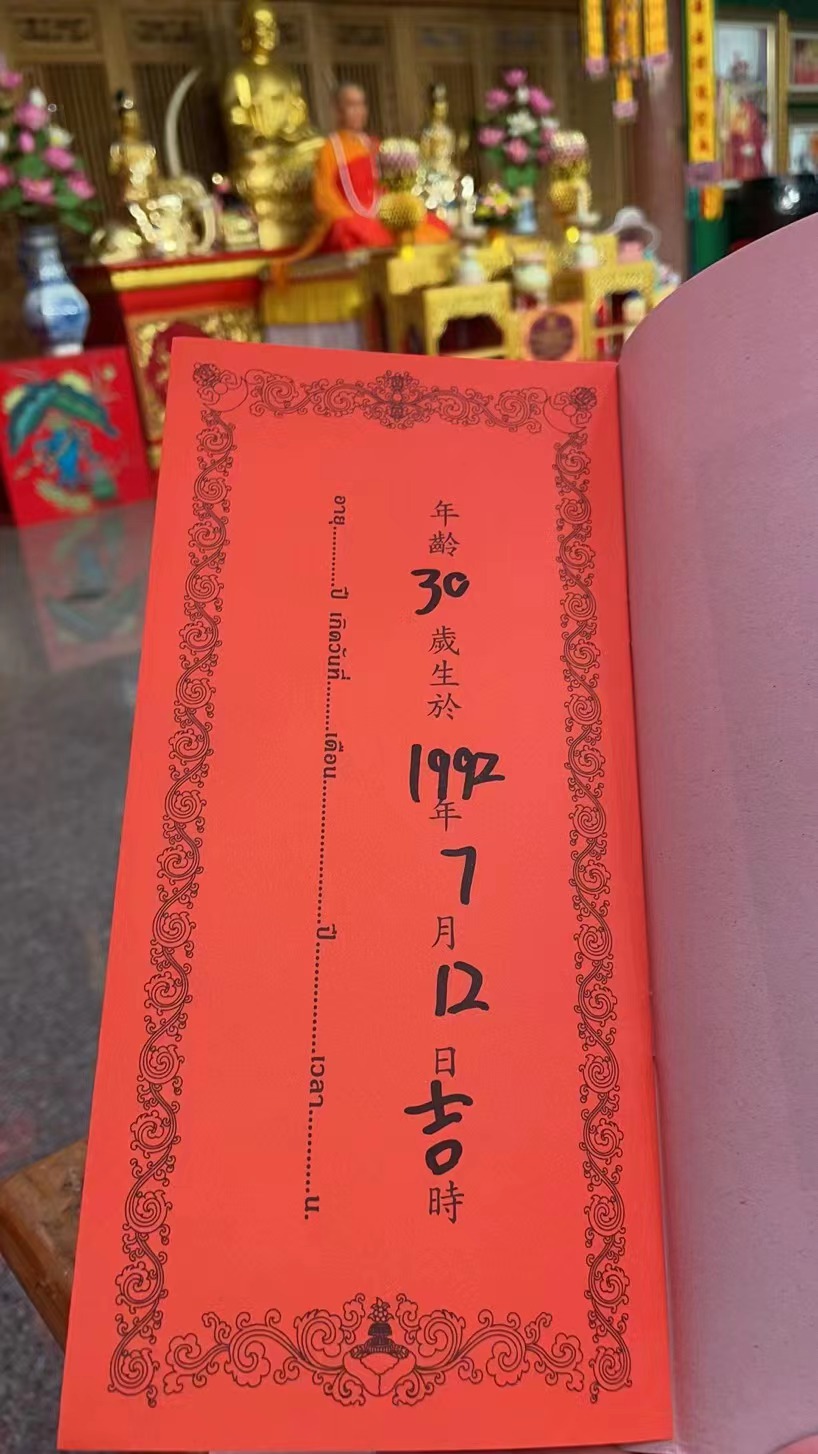 年齡30歲生於1992年7月12日吉時
อายุ............ปี เกิดวันที่..........เดือน..............................ปี........................เวลา..................น.